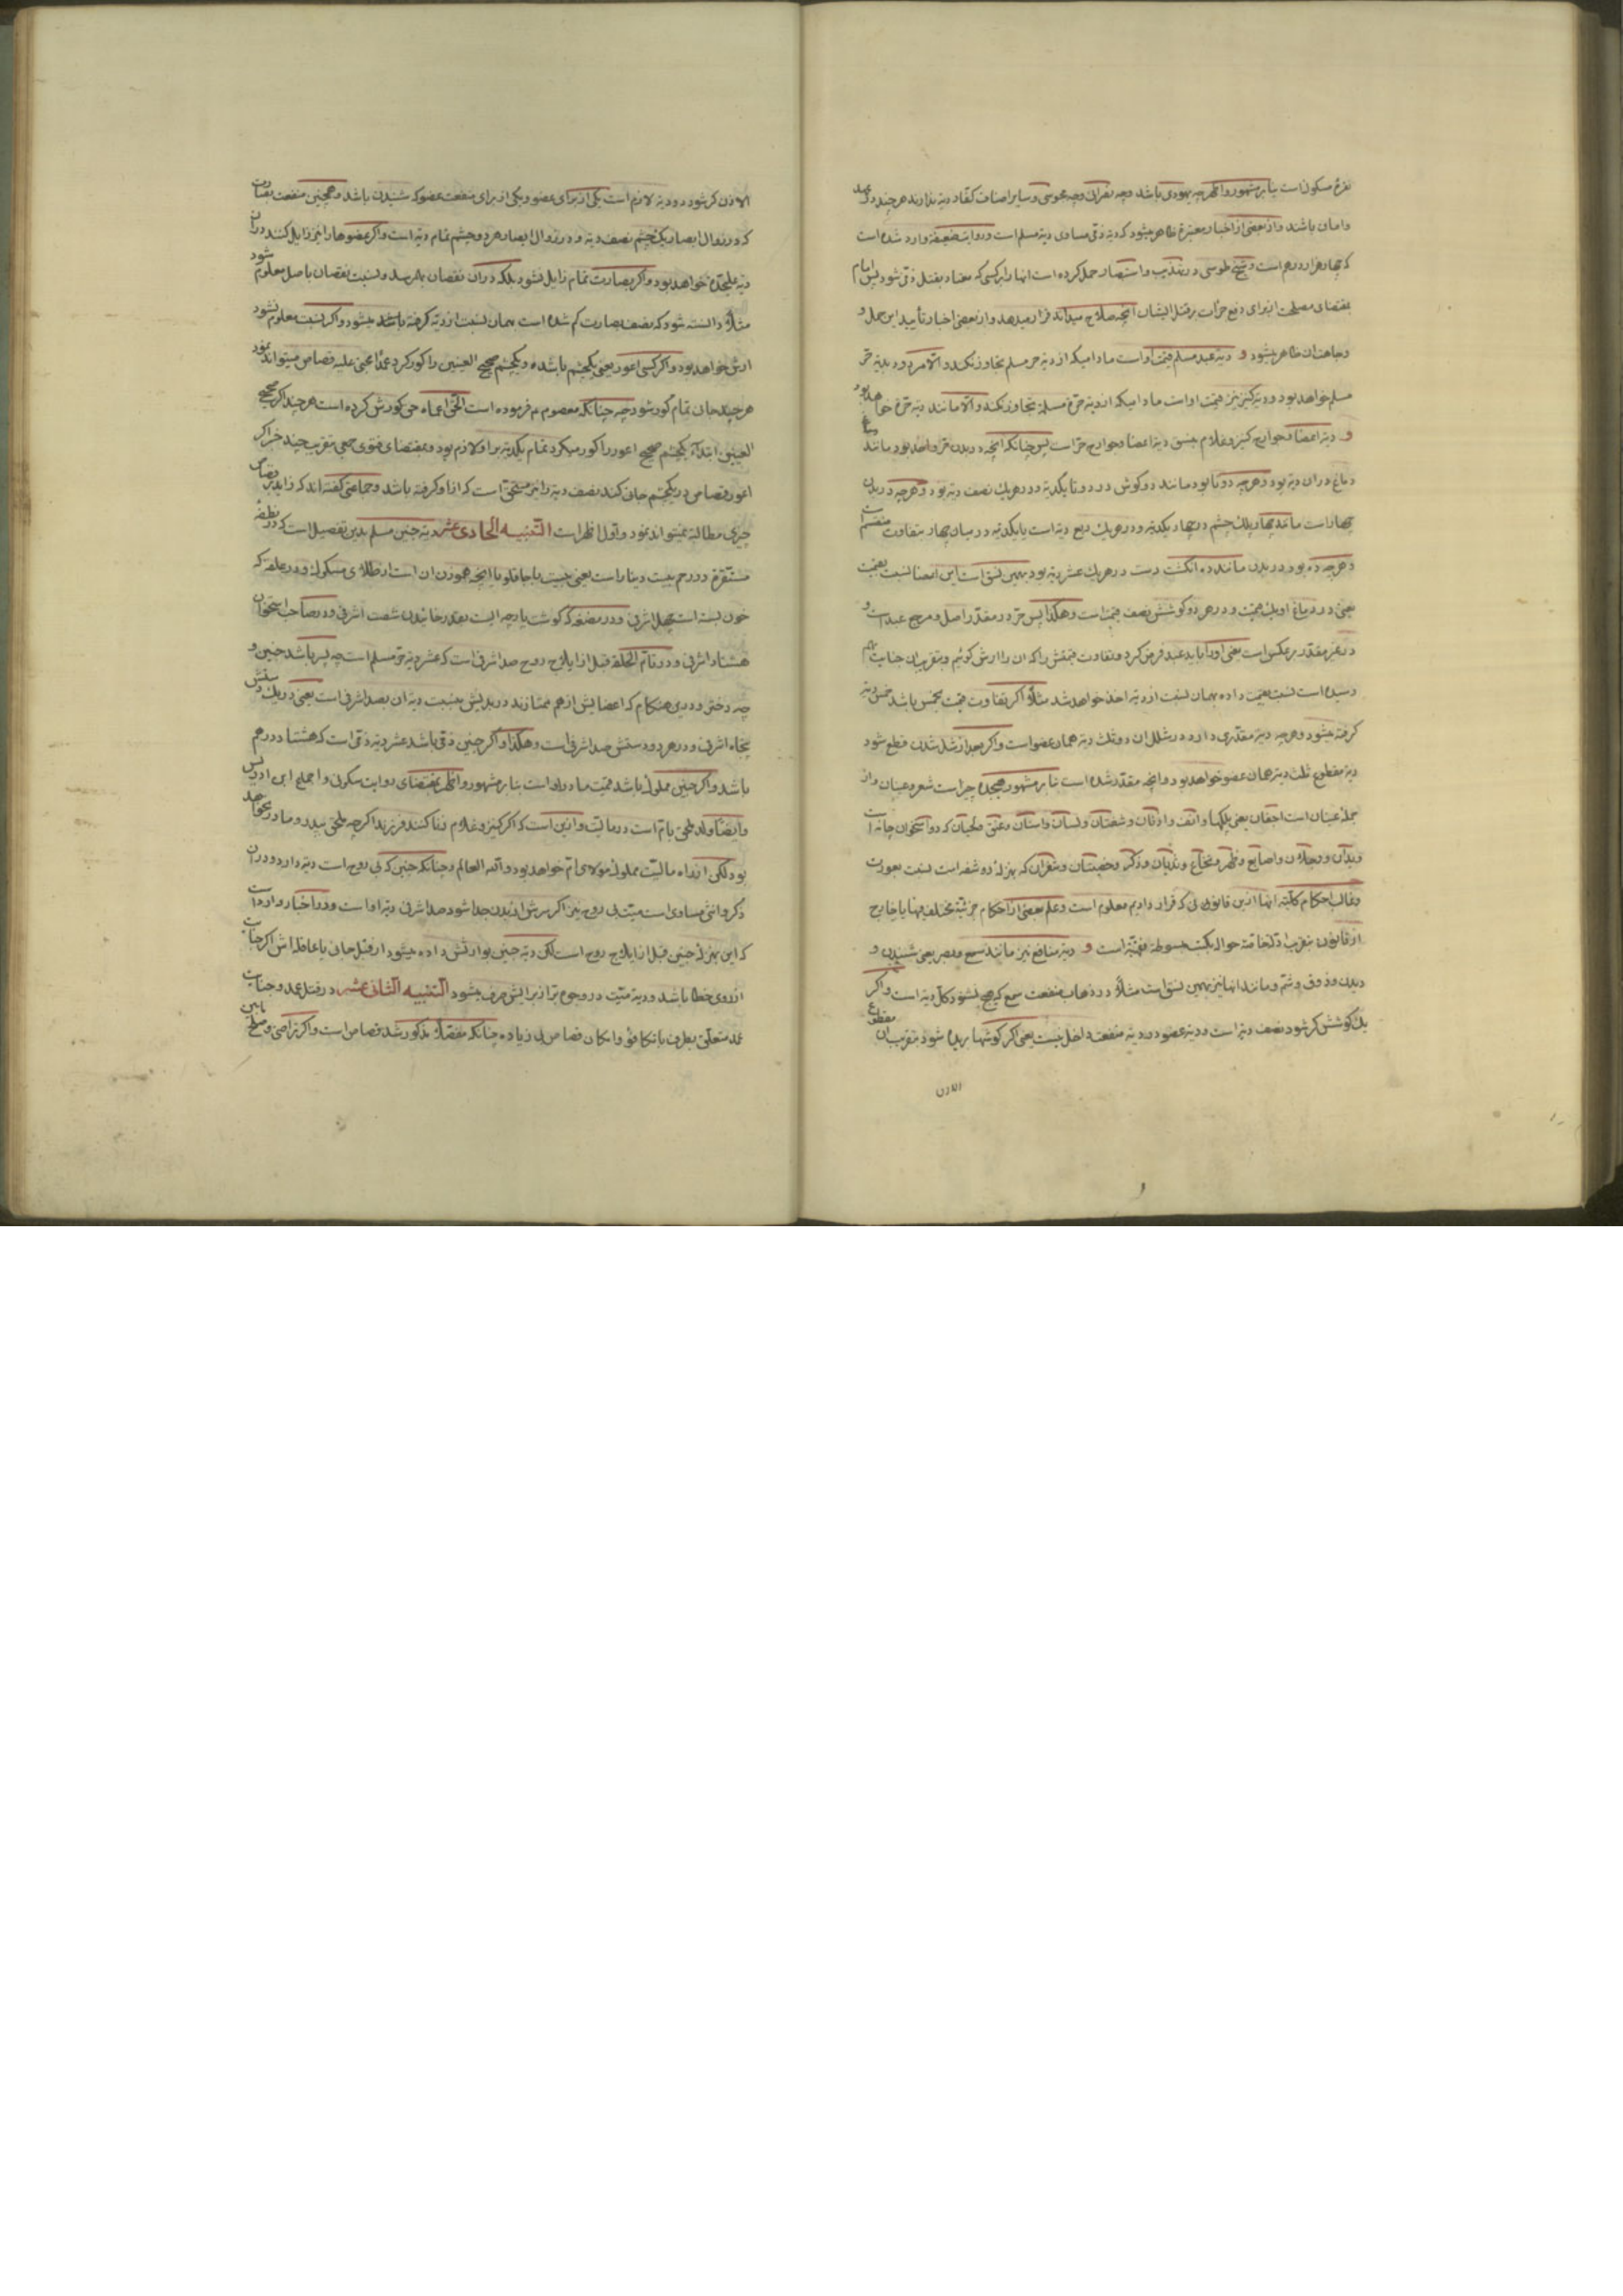 نقرهٔ مسکوک است بنابر مشهور واظهر چه یهودی باشد وچه نصرانی وچه مجوسی وسایر اصناف کفار دیه ندارند هر چند در عهد
وامان باشند واز بعضی از اخبار معتبره ظاهر میشود که دیهٔ ذمی مساوی دیهٔ مسلم است ودر روایت ضعیفه وارد شده است
که چهار هزار درهم است وشیخ طوسی در تهذیب واستبصار حمل کرده است انها را بر کسی که معتاد بقتل ذمی شود پس امام
بمقتضای مصلحت از برای دفع جرأت بر قتل ایشان آنچه صلاح میداند قرار میدهد واز بعضی اخبار تأیید این حمل و
وجاهت ان ظاهر میشود و دیهٔ عبد مسلم قیمت اواست مادامیکه از دیهٔ حر مسلم تجاوز نکند والا مردود بدیهٔ حر
مسلم خواهد بود ودیهٔ کنیز نیز قیمت اواست مادامیکه از دیهٔ حرهٔ مسلمه تجاوز نکند والا مانند دیهٔ حره خواهد بود
و دیهٔ اعضا وجوارح کنیز وغلام بنسق دیهٔ اعضا وجوارح حر است پس چنانکه انچه در بدن حر واحد بود مانند دماغ
دماغ در ان دیه بود وهرچه دوتا بود مانند دو کوش در دوتا یکدیه ودر هریک نصف دیه بود وهرچه در بدن
چهار است مانند چهار پلک چشم در چهار یکدیه ودر هریک ربع دیه است یا یکدیه در میان چهار بتفاوت منقسم است
وهرچه ده بود در بدن مانند ده انکشت دست در هریک عشر دیه بود بهمین نسق است این اعضا نسبت بقیمت
یعنی در دماغ او یک قیمت ودر هر دو کوشش نصف قیمت است وهکذا پس حر در مقدر اصل ومرجع عبد است و
در غیر مقدر برعکس است یعنی اورا باید عبد فرض کرد وتفاوت قیمتش را که ان را ارش کوئیم وبتقریب ان جنایت بهم
رسیده است نسبت بقیمت داده بهمان نسبت از دیه اخذ خواهد شد مثلاً اکر تفاوت قیمت بخمس باشد خمس دیه
کرفته میشود وهرچه دیهٔ مقدری دارد در شلل ان دو ثلث دیهٔ همان عضو است واکر بعد از شل شدن قطع شود
دیهٔ مقطوع ثلث دیهٔ همان عضو خواهد بود وانچه مقدر شده است بنابر مشهور هیجده چیز است شعر وعینان واز
جملهٔ عینان است اجفان یعنی پلکها وانف واذنان وشفتان ولسان واسنان وعنق ولحیان که دو استخوان چانه است
ویدان ورجلان واصابع وظهر ونخاع وثدیان وذکر وخصیتان وشفران که بمنزلهٔ دو شفه است نسبت بعورت
وغالب احکام کلیهٔ انها از این قانون که قرار دادیم معلوم است وعلم بعضی از احکام جزئیهٔ مختلف فیها یا خارج
از قانون بتقریب حواله بکتب مبسوطهٔ فقهیه است و دیهٔ منافع نیز مانند سمع وبصر یعنی شنیدن و
دیدن وذوق وشم ومانند انها نیز بهمین نسق است مثلاً در ذهاب منفعت سمع که هیچ نشنود کل دیه است واکر
یک کوشش کر شود نصف دیه است ودیهٔ عضو در دیهٔ منفعت داخل نیست یعنی اکر کوشها بریده شود بتقریب ان مقطوع
الاذن
الاذن کر شود دو دیه لازم است یکی از برای عضو ویکی از برای منفعت عضو که شنیدن باشد وهمچنین منفعت بصارت
که در زوال ابصار یک چشم نصف دیه ودر زوال ابصار هر دو چشم تمام دیه است واکر عضوها را نیز زایل کنند در ان
دیهٔ علیحده خواهد بود واکر بصارت تمام زایل نشود بلکه در ان نقصان بهم رسد ونسبت نقصان باصل معلوم شود
مثلاً دانسته شود که نصف بصارت کم شده است بهمان نسبت از دیه کرفته میشود واکر نسبت معلوم نشود
ارش خواهد بود واکر کسی اعور یعنی یکچشم باشد ویکچشم صحیح العینین را کور کرد عمداً مجنی علیه قصاص میتواند نمود
هر چند جان تمام کور شود چه چنانکه معصوم ع فرموده است الحق اعماه حق کورش کرده است هر چند اکر صحیح
العینین ابتداءً یکچشم صحیح اعور را کور میکرد تمام یکدیه بر او لازم بود وبمقتضای فتوی جمعی بتقریب چند خبر اکر
اعور قصاص در یکچشم جان کند نصف دیه را نیز مستحق است که از او کرفته باشد وجماعتی کفته اند که زاید بر قصاص
چیزی مطالبه نمیتواند نمود واول اظهر است التنبیه الحادی عشر دیهٔ جنین مسلم بدین تفصیل است که در نطفهٔ
مستقره در رحم بیست دینار است یعنی بیست باجاقلو یا انچه هموزن ان است از طلای مسکوک ودر علقه که
خون بسته است چهل اشرفی ودر مضغه که کوشت پارچه ایست بقدر خائیدن شصت اشرفی ودر صاحب استخوان
هشتاد اشرفی ودر تام الخلقه قبل از ایلاج روح صد اشرفی است که عشر دیهٔ حر مسلم است چه پسر باشد جنین و
چه دختر ودر این هنکام که اعضایش از هم ممتازند در بدنش بنسبت دیهٔ ان بصد اشرفی است یعنی در یک دستش
پنجاه اشرفی ودر هر دو دستش صد اشرفی است وهکذا واکر جنین ذمی باشد عشر دیهٔ ذمی است که هشتاد درهم
باشد واکر جنین مملوک باشد قیمت مادر او است بنابر مشهور واظهر بمقتضای روایت سکونی واجماع ابن ادریس
وایضاً ولد ملحق بام است در مالیت واز این است که اکر کنیز وغلام زنا کنند فرزند اکرچه ملحق بپدر ومادر نخواهد
بود لکن از راه مالیت مملوک مولای ام خواهد بود والله العالم وچنانکه جنین که بی روح است دیه دارد ودر ان
ذکر وانثی مساوی است میت بی روح نیز اکر سرش از بدن جدا شود صد اشرفی دیهٔ او است ودر اخبار وارد است
که این بمنزلهٔ جنین قبل از ایلاج روح است لکن دیهٔ جنین بوارثش داده میشود از قبل جانی یا عاقله اش اکر جنایت
از روی خطا باشد ودیهٔ میت در وجوه بر از برایش صرف میشود التنبیه الثانی عشر در قتل عمد وجنایت
عمد متعلق ببدن با تکافؤ وامکان قصاص بی زیاده چنانکه مفصلاً مذکور شد قصاص است واکر تراضی وصلح مابین